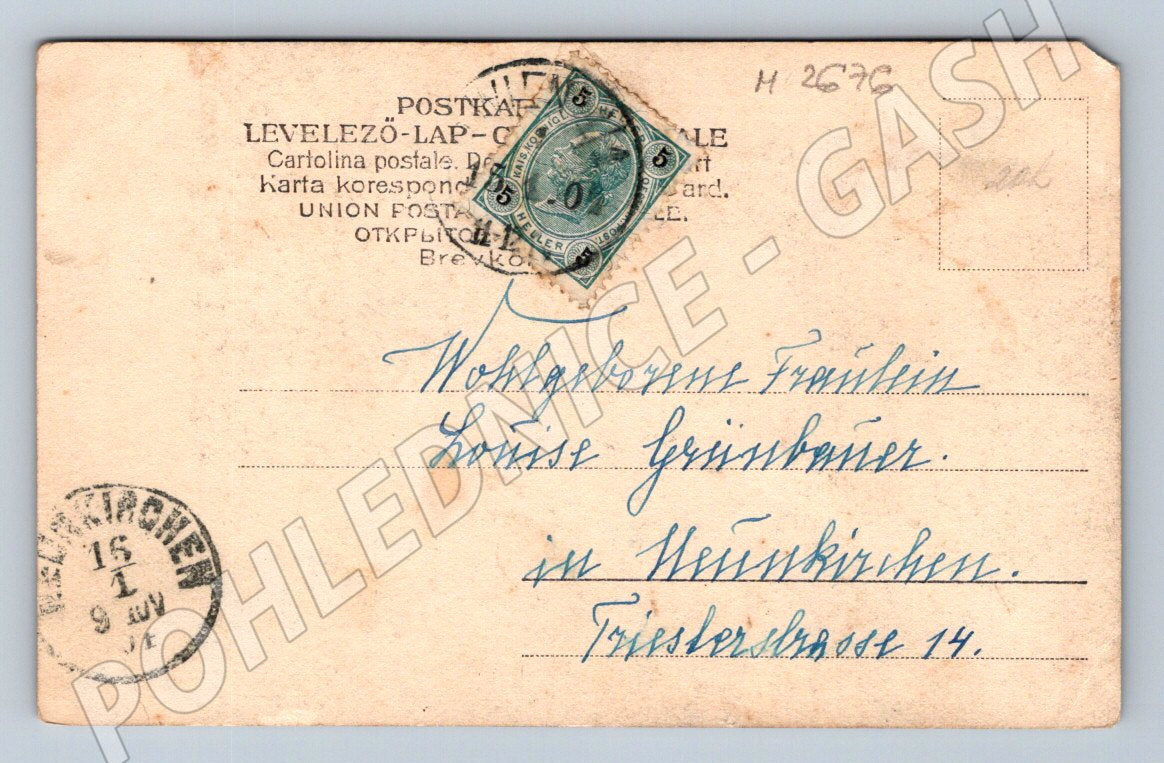 M 2676
POSTKA
LEVELEZŐ-LAP-C ALE
Cartolina postale. D rt
Karta korespond ard.
UNION POSTA LE.
ОТКРЫТО
Brevko
5 HELLER 5
KAIS. KÖNIGL.
5 HELLER 5
15 04
11-12
Wohlgeborene Fräulein
Louise Grünbauer.
in Neunkirchen.
Triesterstrasse 14.
NEUNKIRCHEN
16
1
9
POHLEDNICE - GASH